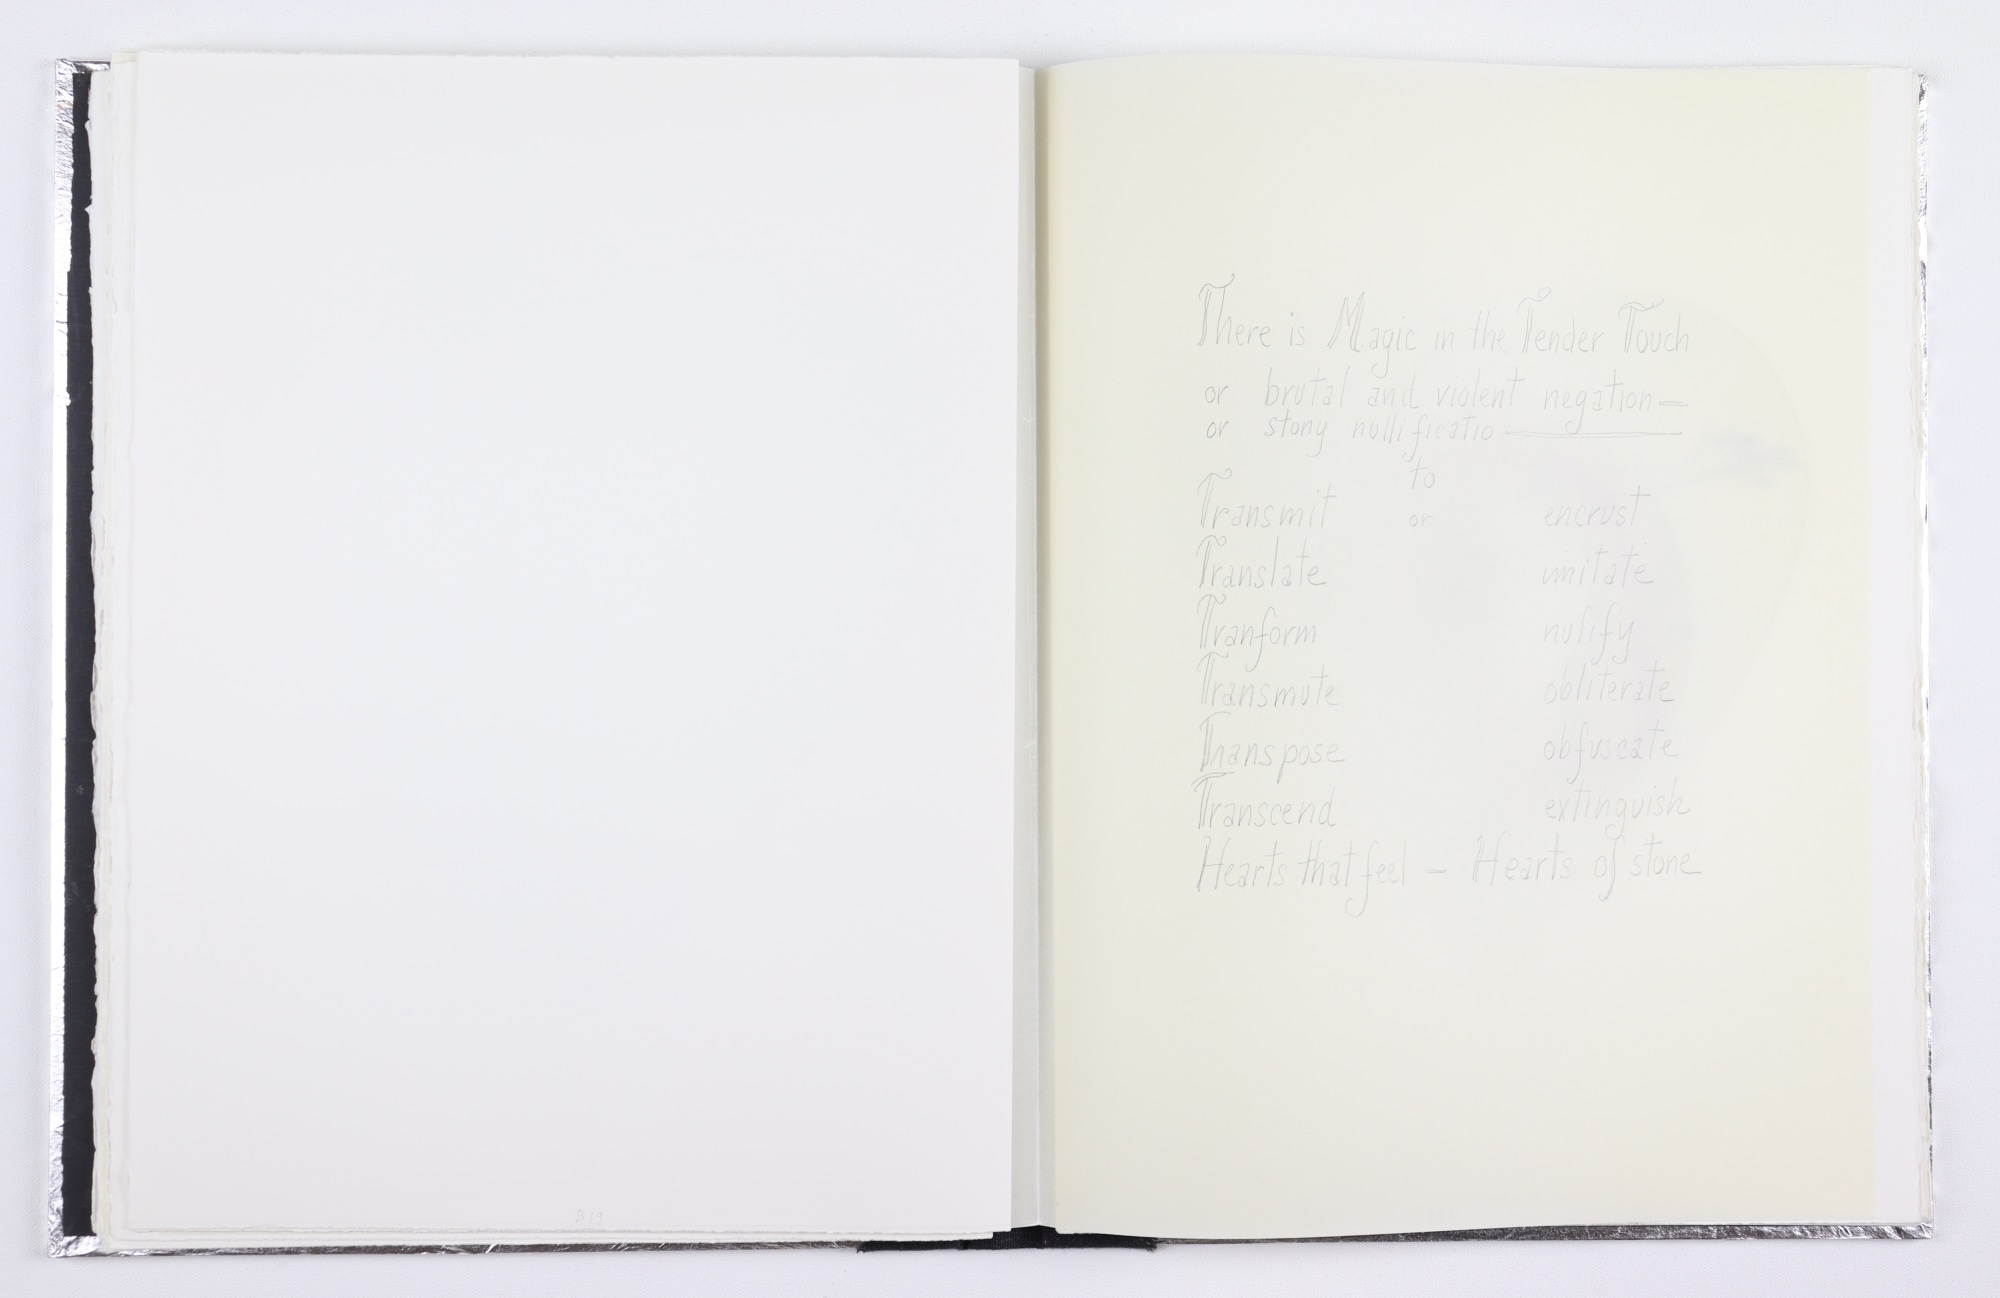 There is Magic in the Tender Touch
or brutal and violent negation—
or stony nullificatio——
to
Transmit or encrust
Translate imitate
Tranform nulify
Transmute obliterate
Transpose obfuscate
Transcend extinguish
Hearts that feel — Hearts of stone
B19